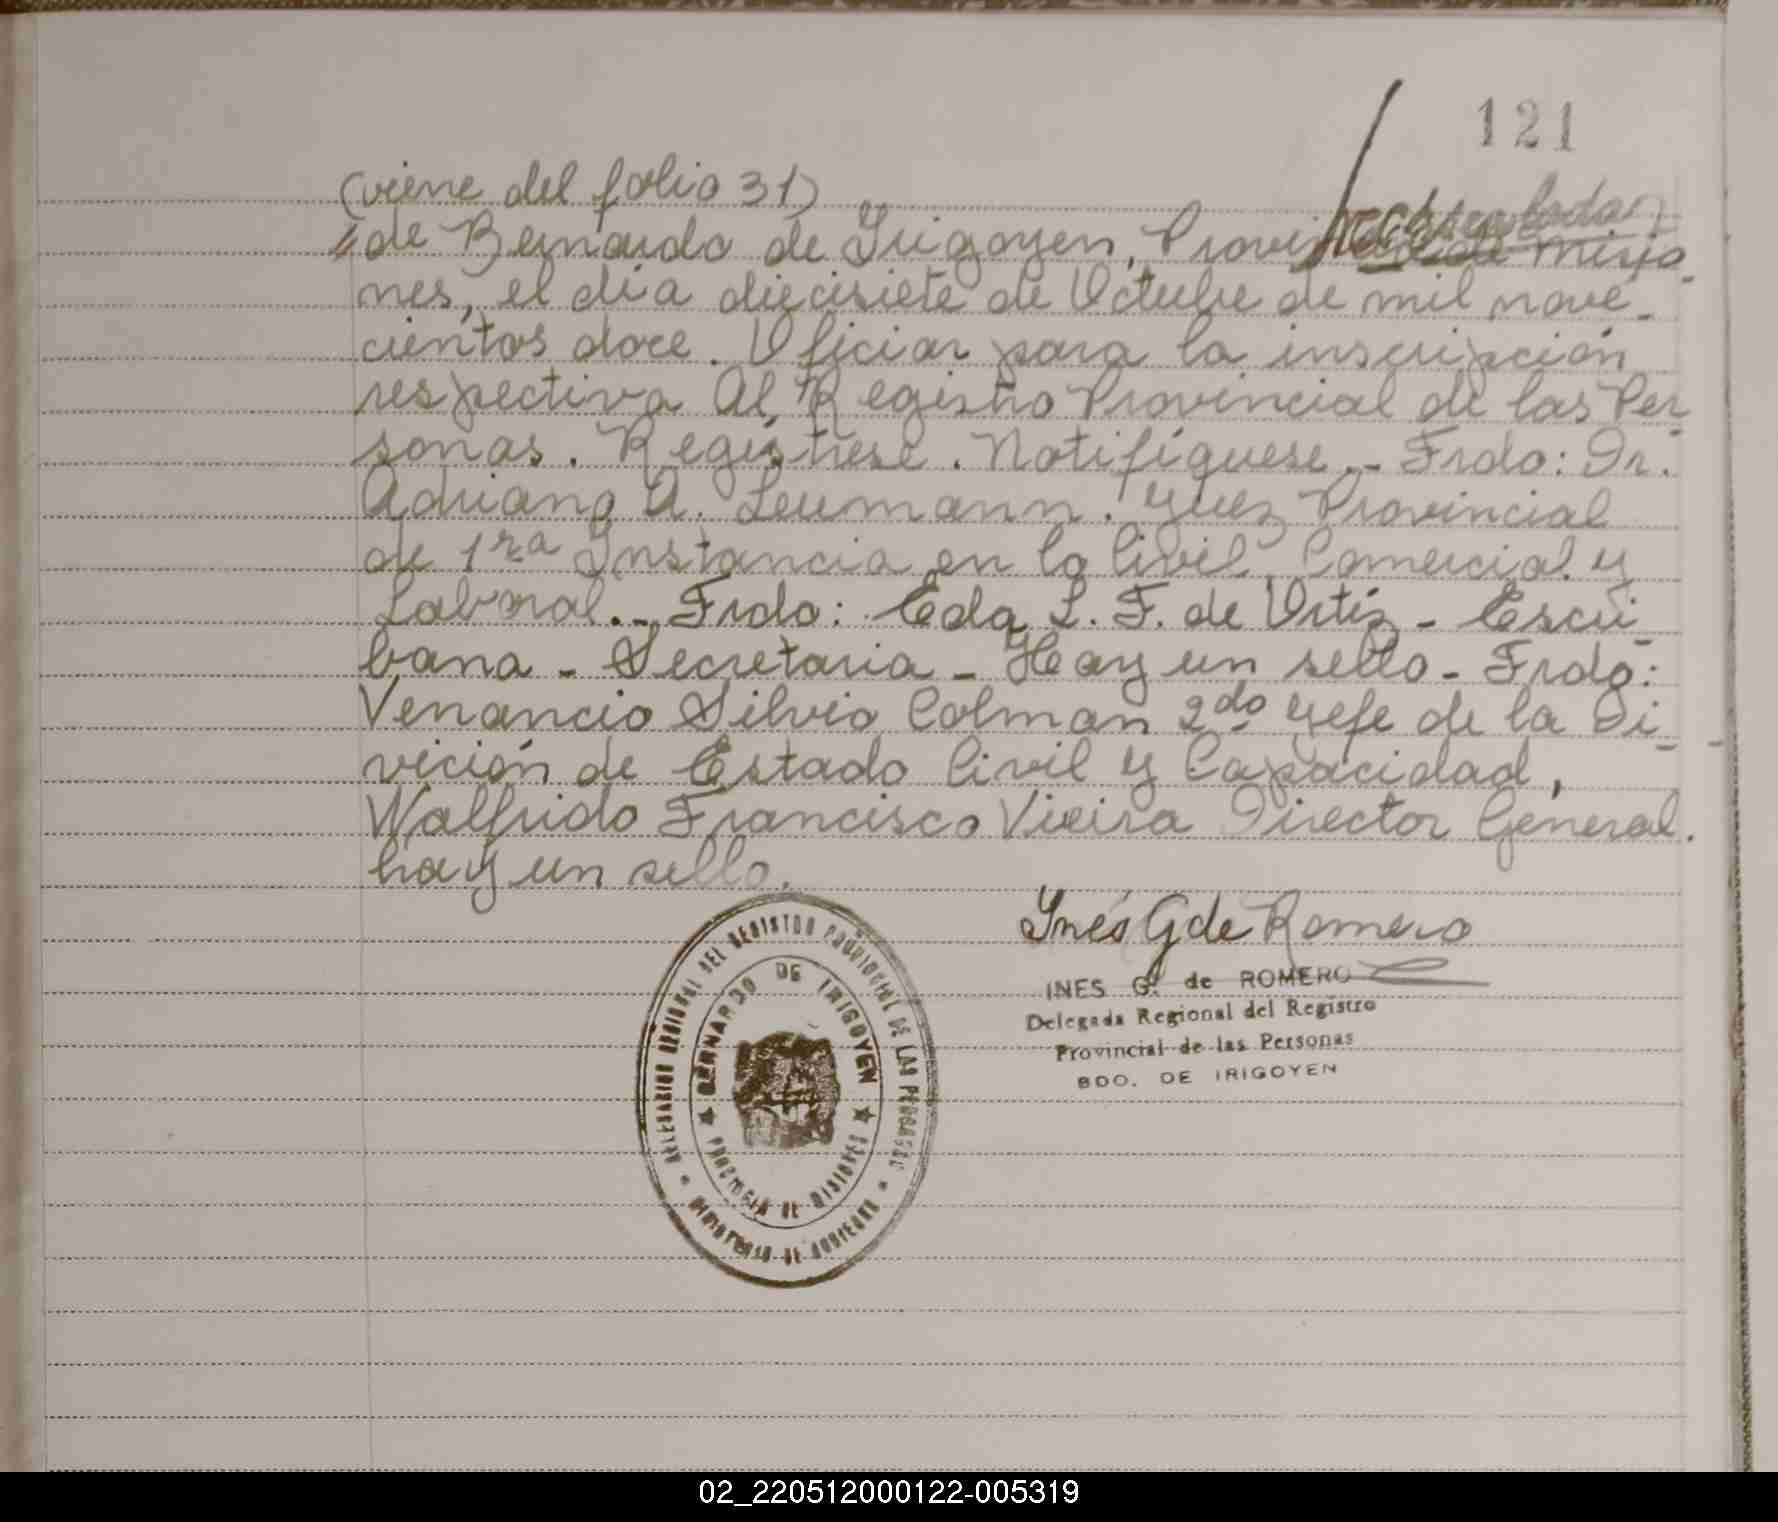 121
(viene del folio 31)
de Bernardo de Yrigoyen, Provincia de Misio-
nes, el día diecisiete de Octubre de mil nove-
cientos doce. Oficiar para la inscripción
respectiva Al Registro Provincial de las Per
sonas. Regístrese. Notifíquese.- Frdo: Dr.
Adriano A. Leumann. Yuez Provincial
de 1ra Instancia en lo Civil, Comercial y
Laboral.- Frdo: Eda L. F. de Ortiz - Escri-
bana - Secretaria - Hay un sello - Frdo:
Venancio Silvio Colman 2do Yefe de la Di-
vición de Estado Civil y Capacidad,
Walfrido Francisco Vieira Director General.
hay un sello.
Ynés G de Romero
INES G. de ROMERO
Delegada Regional del Registro
Provincial de las Personas
BDO. DE IRIGOYEN
DELEGACION REGIONAL DEL REGISTRO PROVINCIAL DE LAS PERSONAS
MINISTERIO DE GOBIERNO
BERNARDO DE IRIGOYEN
PROVINCIA DE MISIONES
02_220512000122-005319